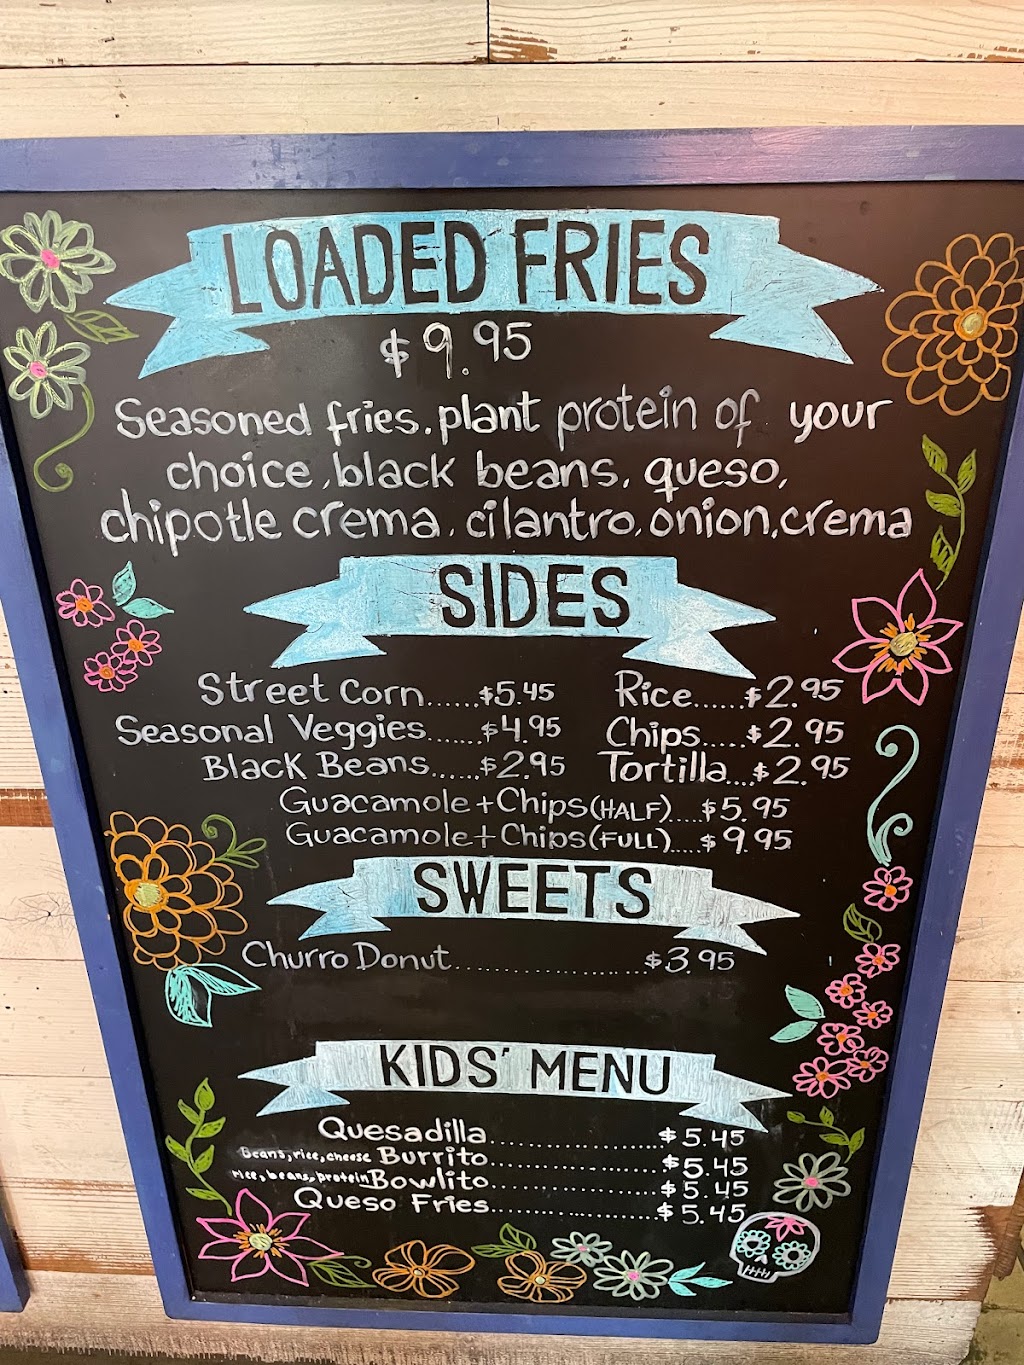 LOADED FRIES
$9.95
Seasoned fries, plant protein of your
choice, black beans, queso,
chipotle crema, cilantro, onion, crema
SIDES
Street Corn......$5.45 Rice......$2.95
Seasonal Veggies......$4.95 Chips.....$2.95
Black Beans.....$2.95 Tortilla...$2.95
Guacamole + Chips (HALF)....$5.95
Guacamole + Chips (FULL).....$9.95
SWEETS
Churro Donut........................$3.95
KIDS' MENU
Quesadilla....................$5.45
Beans, rice, cheese Burrito....................$5.45
rice, beans, protein Bowlito....................$5.45
Queso Fries....................$5.45